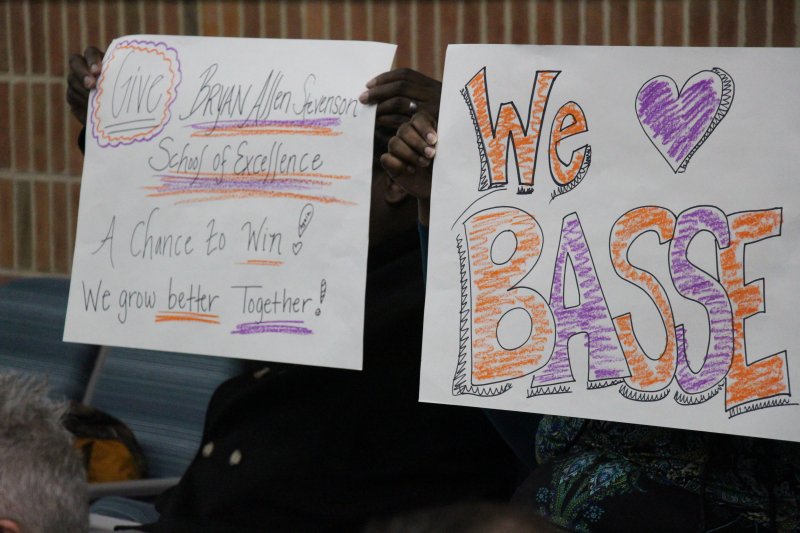 Give BRYAN Allen Stevenson
School of Excellence
A Chance to Win!
We grow better Together!
We
BASSE